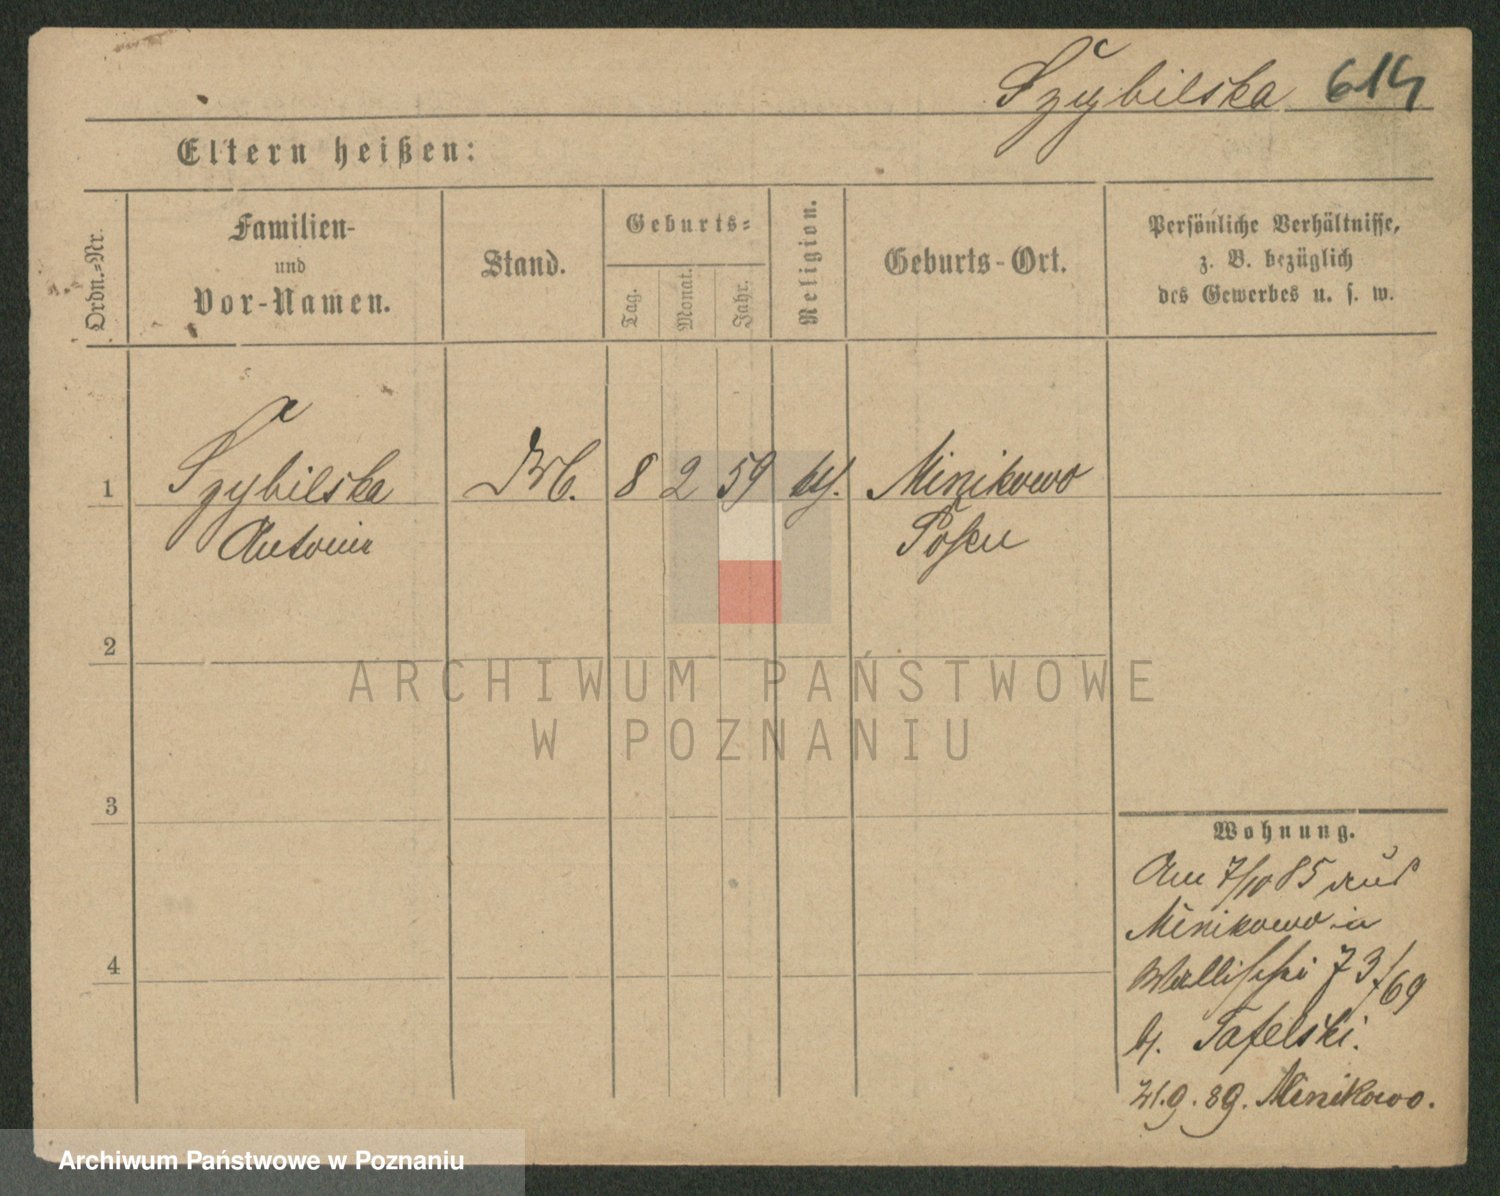 Szybilska 614
Eltern heißen:
Ordn.=Nr.
Familien-
und
Vor-Namen.
Stand.
Geburts=
Tag.
Monat.
Jahr.
Religion.
Geburts-Ort.
Persönliche Verhältnisse,
z. B. bezüglich
des Gewerbes u. s. w.
1 Szybilska 8 2 59 Minikowo
Posen
2
3
4
Wohnung.
Am 7/10 85 aus
Minikowo in
Wallischei 73/69
b. Tafelski.
21.9.89. Minikowo.
ARCHIWUM PAŃSTWOWE
W POZNANIU
Archiwum Państwowe w Poznaniu